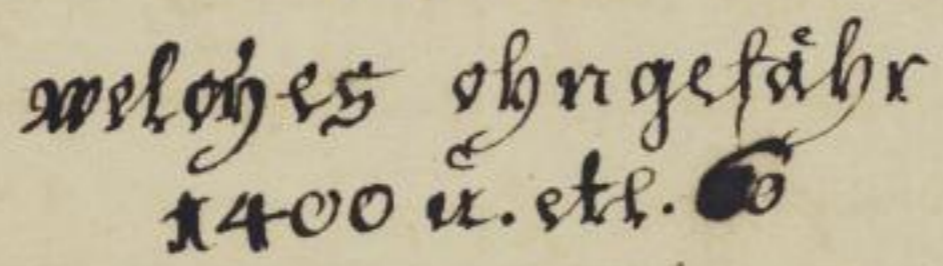 welches ohngefähr
1400 u. etl.